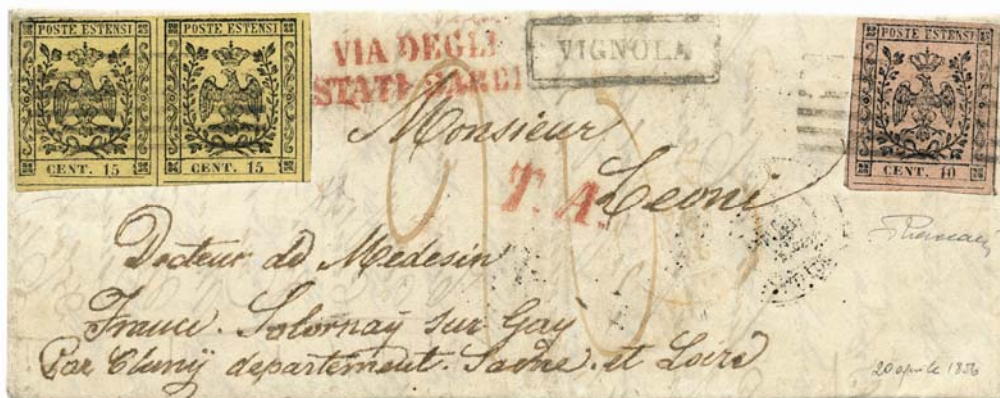 POSTE ESTENSI POSTE ESTENSI
CENT. 15 CENT. 15
VIA DEGLI
STATI SARDI
VIGNOLA
POSTE ESTENSI
CENT. 10
Monsieur
Leoni
T. A.
Docteur de Medesin
France. Solornaÿ sur Gay
Par Clunÿ departement. Saône. et Loire
20 aprile 1856